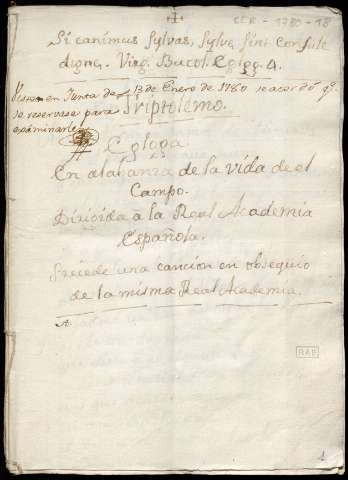 CER-1780-18
Si canimus sylvas, sylvæ sint consule
dignæ. Virg. Bucol. Eglog. 4.
Visto en Junta de 13 de Enero de 1780 se acordó q.e
se reservase para
examinarle
Triptolemo.
Egloga
En alabanza de la vida de el
Campo.
Dirigida a la Real Academia
Española.
Precede una cancion en obsequio
de la misma Real Academia.
A
RAE
1